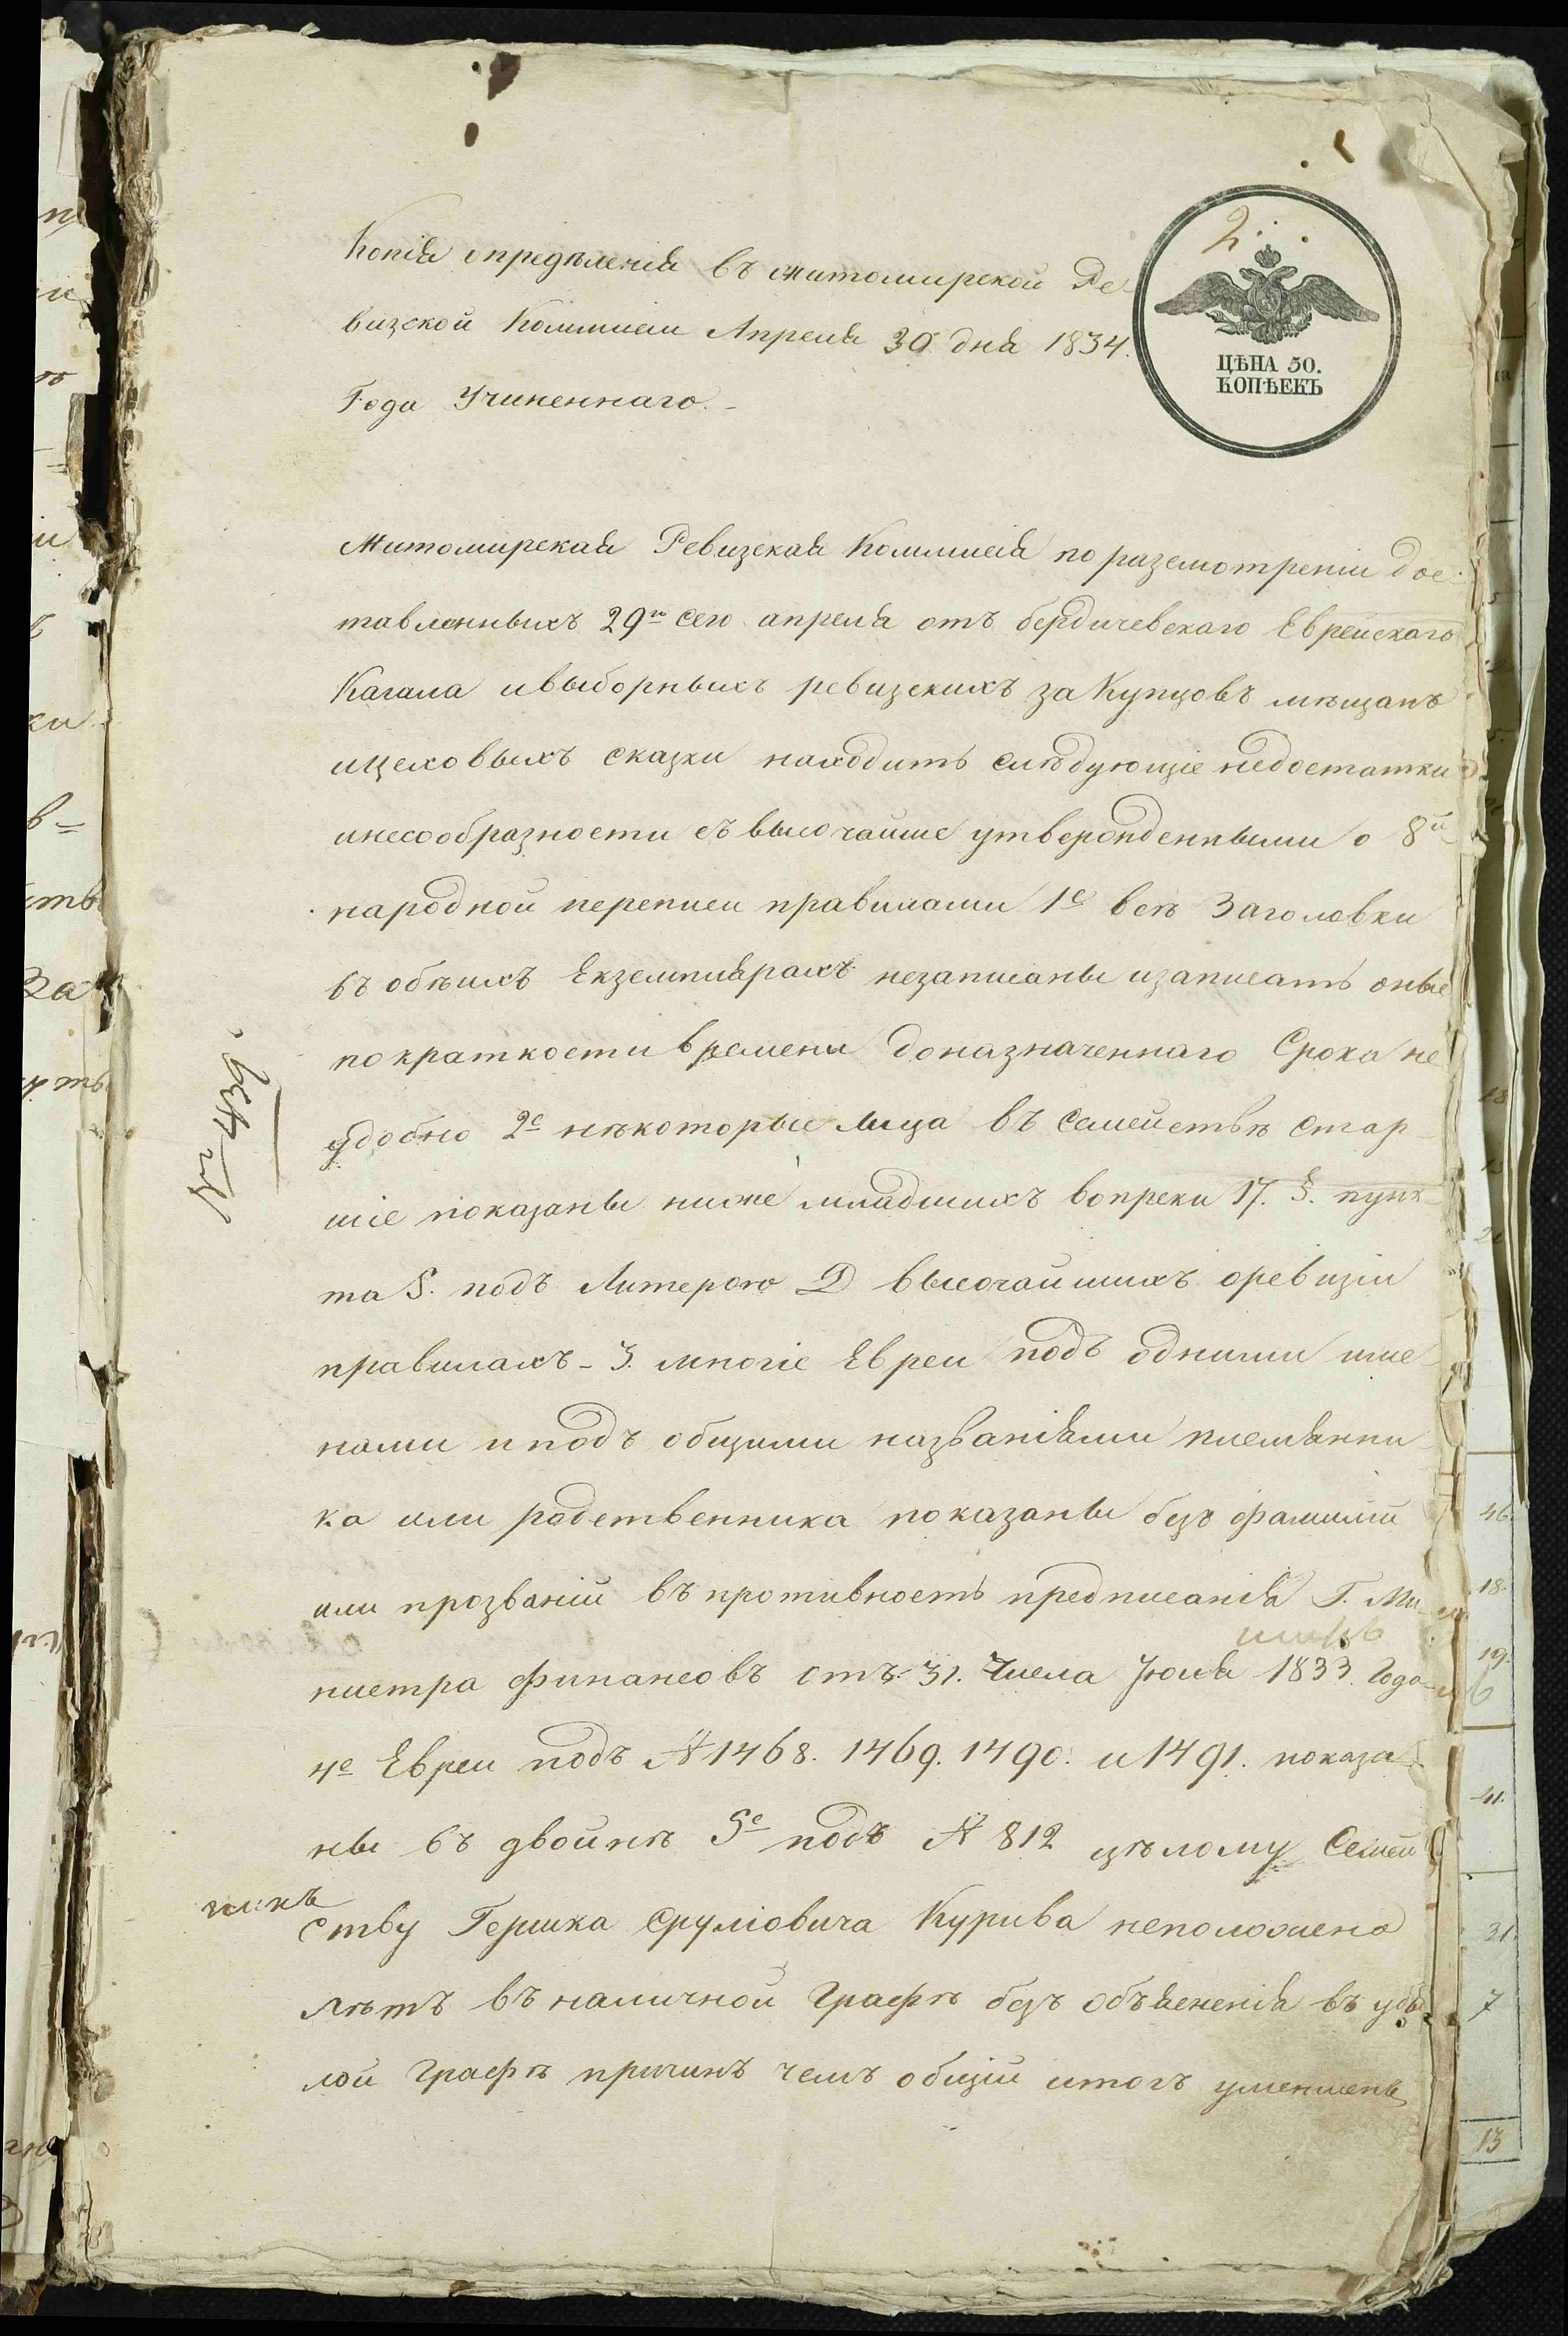 2.
ЦѢНА 50.
КОПѢЕКЪ
Копія опредѣленія въ житомирской Ре
визской Коммисіи Апреля 30 дня 1834.
Года Учиненнаго.-
Житомирская Ревизская Коммисія по разсмотреніи дос-
тавленныхъ 29го сего апреля отъ бердичевскаго Еврейскаго
Кагала ивыборныхъ ревизскихъ за Купцовъ мѣщанъ
ицеховыхъ сказки находитъ слѣдующіе недостатки
инесообразности съ высочайше утвержденными о 8й
народной переписи правилами 1е всѣ Заголовки
въ обѣихъ Екземплярахъ незаписаны изаписать оные
по краткости времени доназначеннаго Срока не
удобно 2е нѣкоторые лица въ Семействѣ Стар-
шіе показаны ниже младшихъ вопреки 17. §. пунк-
та 5. подъ Литерою D высочайшихъ оревизіи
правилахъ - 3. многіе Евреи подъ одними име-
нами иподъ общими названіями племянни-
ка или родственника показаны безъ фамилій
или прозваній въ противность предписанія Г. Ми-
нистра финансовъ отъ 31. Числа Іюля 1833. Года-
4е Евреи подъ № 1468. 1469. 1490. и 1491. показа-
ны въ двойнѣ 5е подъ № 812 цѣлому Семей
ству Гершка Сруліовича Курива неположено
лѣтъ въ наличной Графѣ безъ объясненія въ убы
лой Графѣ причинъ чемъ общій итогъ уменшенъ